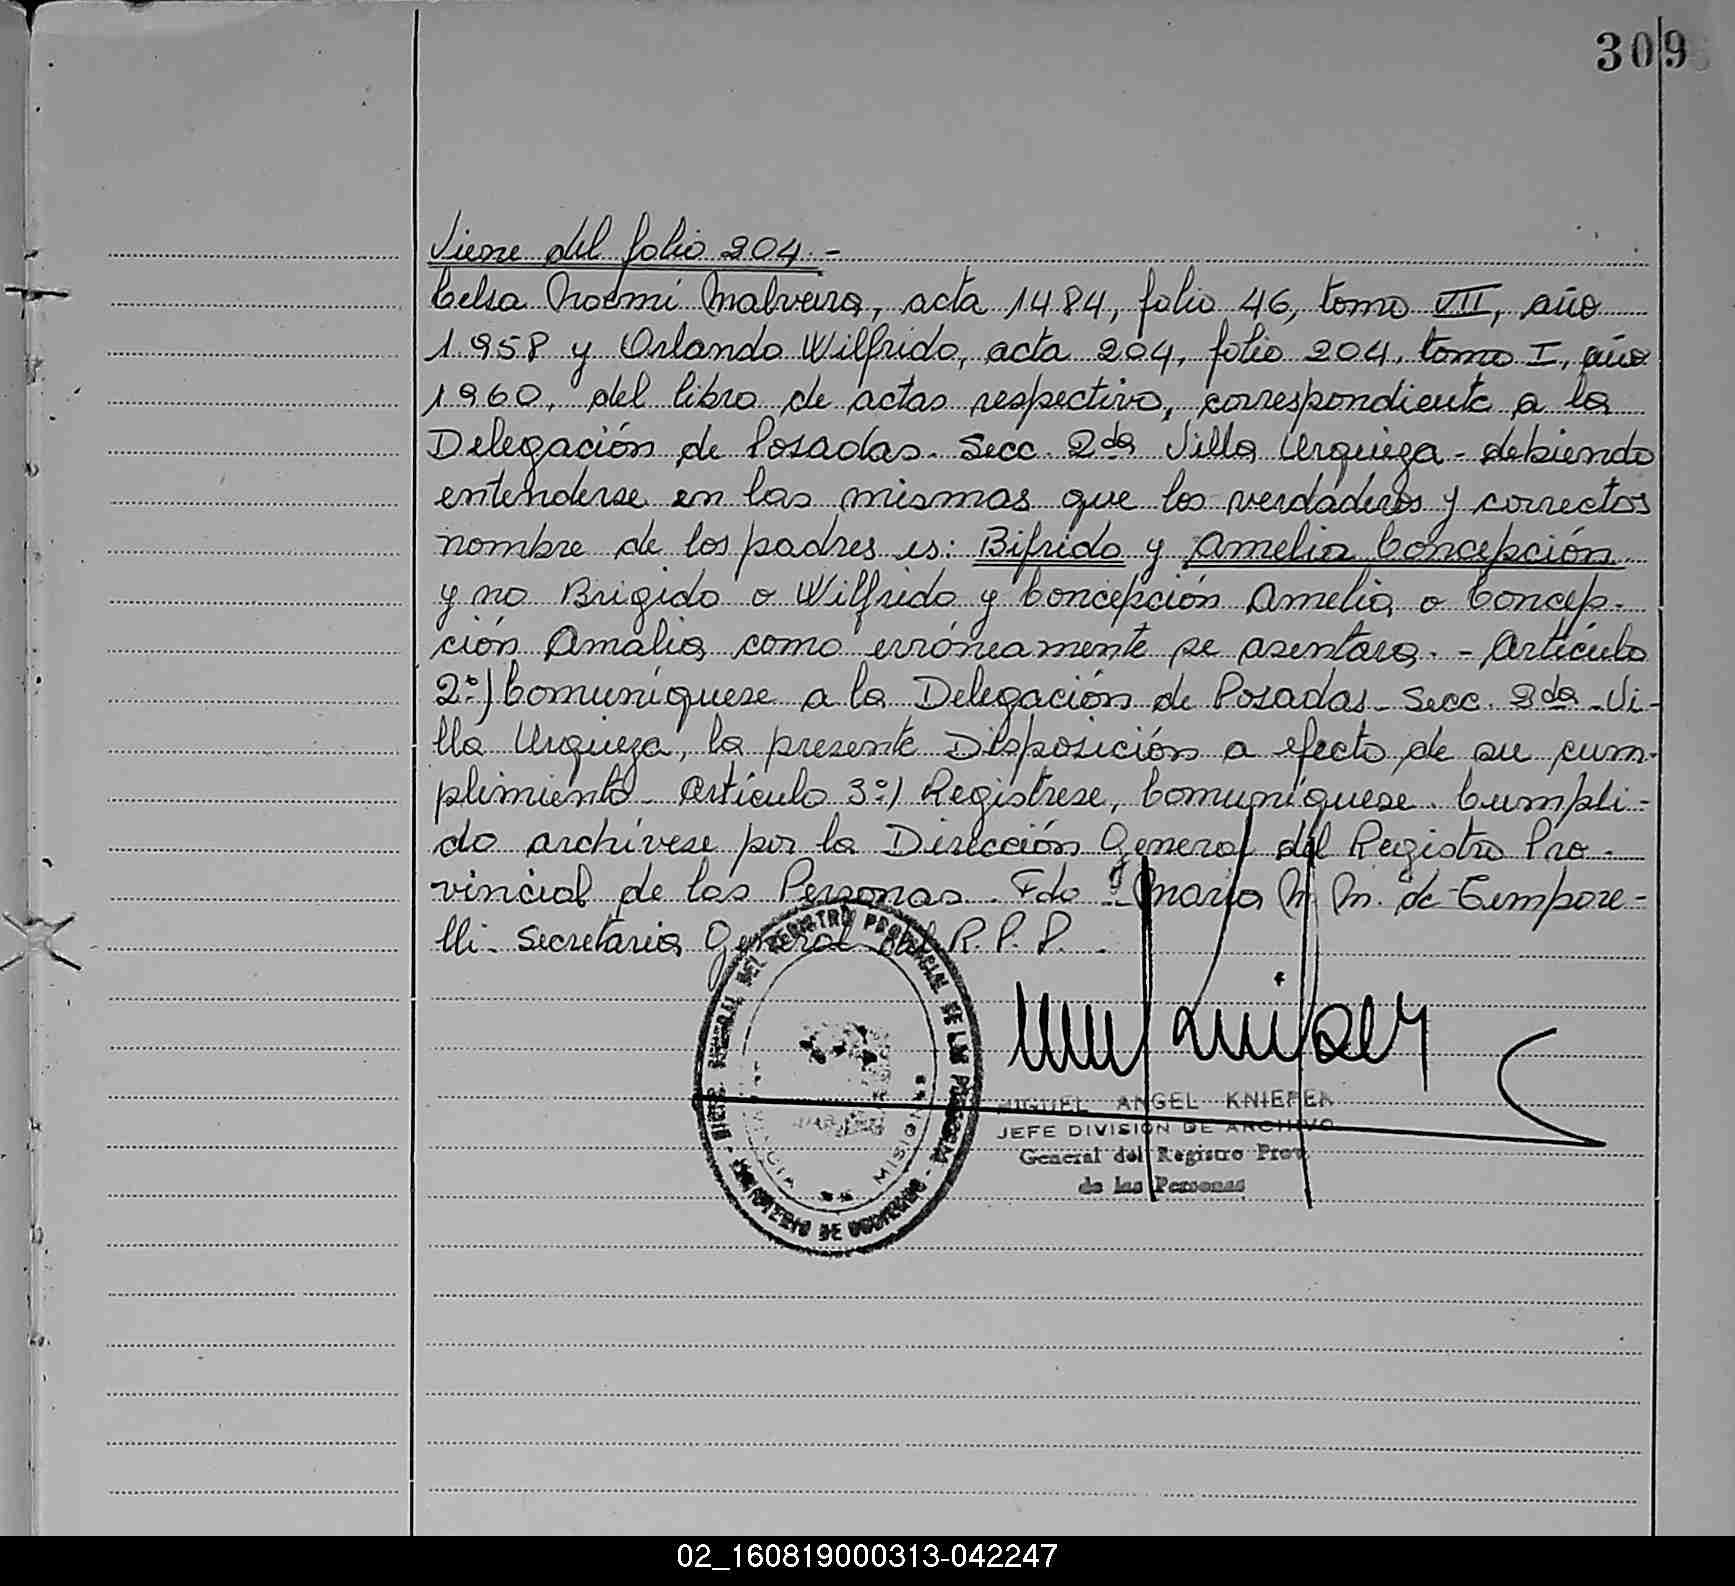 309
Viene del folio 204.-
Celsa Noemí Malveira, acta 1484, folio 46, tomo VII, año
1.958 y Orlando Wilfrido, acta 204, folio 204, tomo I, año
1960, del libro de actas respectivo, correspondiente a la
Delegación de Posadas. Secc. 2da Villa Urquiza - debiendo
entenderse en las mismas que los verdaderos y correctos
nombre de los padres es: Bifrido y Amelia Concepción
y no Brigido o Wilfrido y Concepción Amelia o Concep-
ción Amalia como erróneamente se asentara. - Artículo
2º) Comuníquese a la Delegación de Posadas - Secc. 2da - Vi-
lla Urquiza, la presente Disposición a efecto de su cum-
plimiento - Artículo 3º) Regístrese, Comuníquese. Cumpli-
do archívese por la Dirección General del Registro Pro-
vincial de las Personas. Fdo: María M. M. de Tempore-
lli - Secretaria General del R. P. P. -
DEL REGISTRO PROVINCIAL DE LAS PERSONAS - MINISTERIO DE GOBIERNO
MISIONES
MIGUEL ANGEL KNIEPER
JEFE DIVISION DE ARCHIVO
General del Registro Prov.
de las Personas
02_160819000313-042247